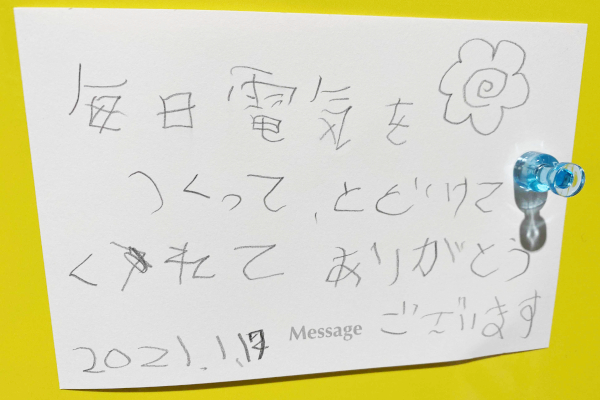 毎日電気を
つくって、とどけて
くれて ありがとう
ございます
Message
2021.1.17